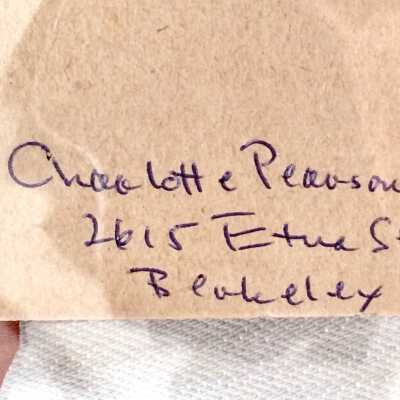 Charlotte Pearson
2615 Etna St
Berkeley